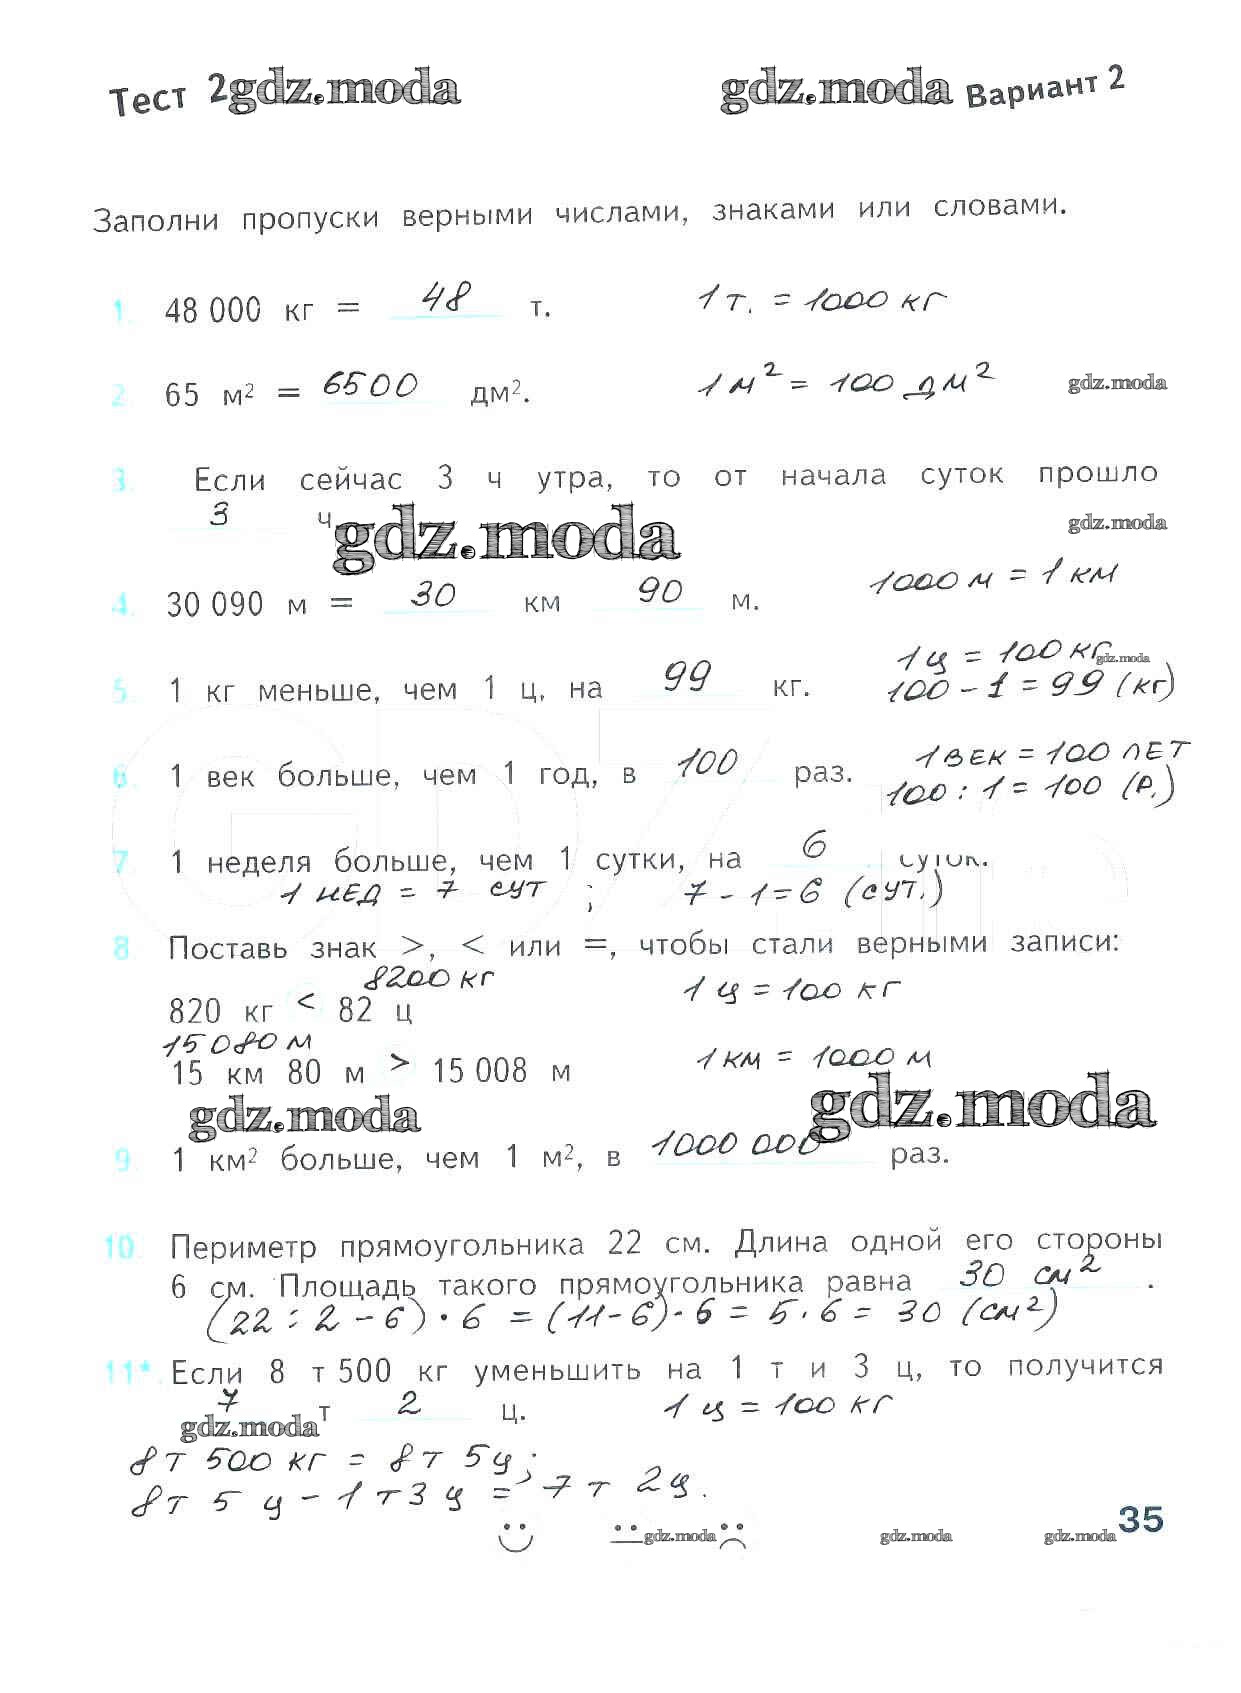 Тест 2gdz.moda gdz.moda Вариант 2
Заполни пропуски верными числами, знаками или словами.
1. 48 000 кг = 48 т. 1 т. = 1000 кг
2. 65 м² = 6500 дм². 1 м² = 100 дм² gdz.moda
3. Если сейчас 3 ч утра, то от начала суток прошло
3 ч gdz.moda gdz.moda
4. 30 090 м = 30 км 90 м. 1000 м = 1 км
1 ц = 100 кг gdz.moda
5. 1 кг меньше, чем 1 ц, на 99 кг. 100 - 1 = 99 (кг)
1 век = 100 лет
6. 1 век больше, чем 1 год, в 100 раз. 100 : 1 = 100 (р.)
7. 1 неделя больше, чем 1 сутки, на 6 суток.
1 нед = 7 сут ; 7 - 1 = 6 (сут.)
8 Поставь знак >, < или =, чтобы стали верными записи:
8200 кг
820 кг < 82 ц 1 ц = 100 кг
15080 м
15 км 80 м > 15 008 м 1 км = 1000 м
gdz.moda gdz.moda
9. 1 км² больше, чем 1 м², в 1000 000 раз.
10. Периметр прямоугольника 22 см. Длина одной его стороны
6 см. Площадь такого прямоугольника равна 30 см² .
(22 : 2 - 6) · 6 = (11-6) · 6 = 5 · 6 = 30 (см²)
11*. Если 8 т 500 кг уменьшить на 1 т и 3 ц, то получится
7 т 2 ц. 1 ц = 100 кг
gdz.moda
8 т 500 кг = 8 т 5 ц;
8 т 5 ц - 1 т 3 ц = 7 т 2 ц.
gdz.moda gdz.moda gdz.moda 35